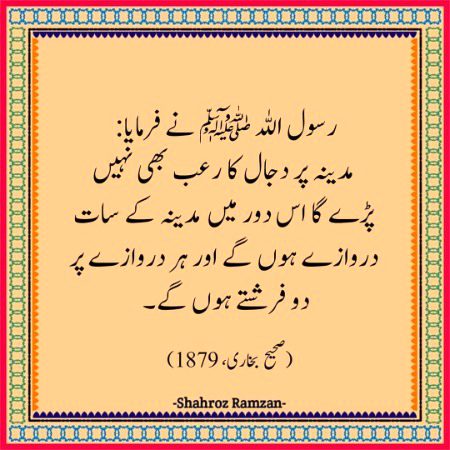 رسول اللہ ﷺ نے فرمایا:
مدینہ پر دجال کا رعب بھی نہیں
پڑے گا اس دور میں مدینہ کے سات
دروازے ہوں گے اور ہر دروازے پر
دو فرشتے ہوں گے۔
(صحیح بخاری، 1879)
-Shahroz Ramzan-